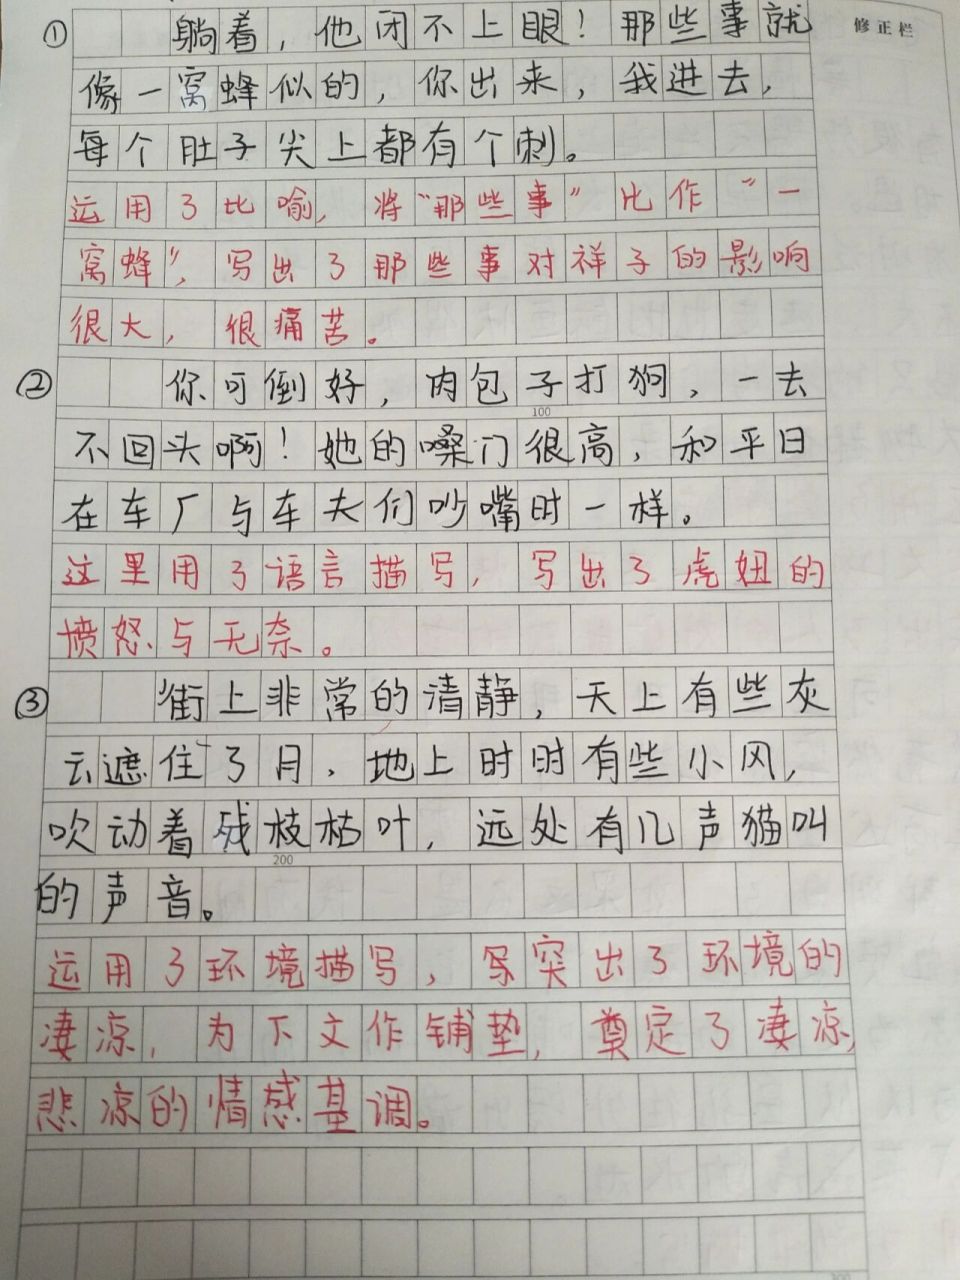 修正栏
① 躺着，他闭不上眼！那些事就
像一窝蜂似的，你出来，我进去，
每个肚子尖上都有个刺。
运用了比喻，将“那些事”比作“一
窝蜂”，写出了那些事对祥子的影响
很大，很痛苦。
② 你可倒好，肉包子打狗，一去
100
不回头啊！她的嗓门很高，和平日
在车厂与车夫们吵嘴时一样。
这里用了语言描写，写出了虎妞的
愤怒与无奈。
③ 街上非常的清静，天上有些灰
云遮住了月，地上时时有些小风，
吹动着残枝枯叶，远处有几声猫叫
200
的声音。
运用了环境描写，写突出了环境的
凄凉，为下文作铺垫，奠定了凄凉，
悲凉的情感基调。